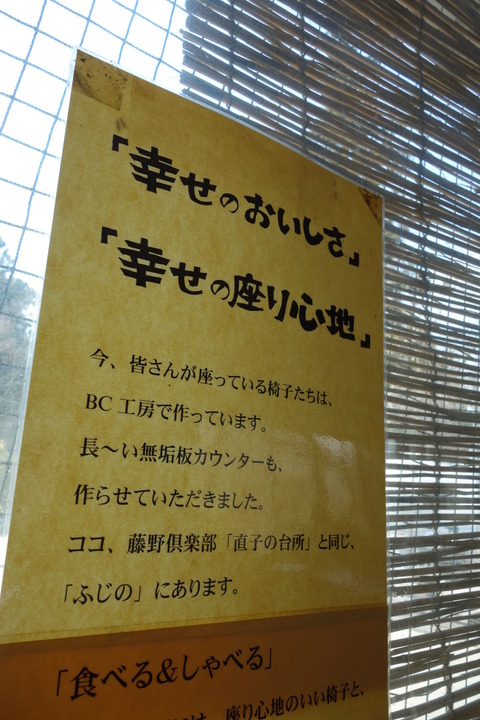 「幸せのおいしさ」
「幸せの座り心地」
今、皆さんが座っている椅子たちは、
BC工房で作っています。
長～い無垢板カウンターも、
作らせていただきました。
ココ、藤野倶楽部「直子の台所」と同じ、
「ふじの」にあります。
「食べる&しゃべる」
には、座り心地のいい椅子と、